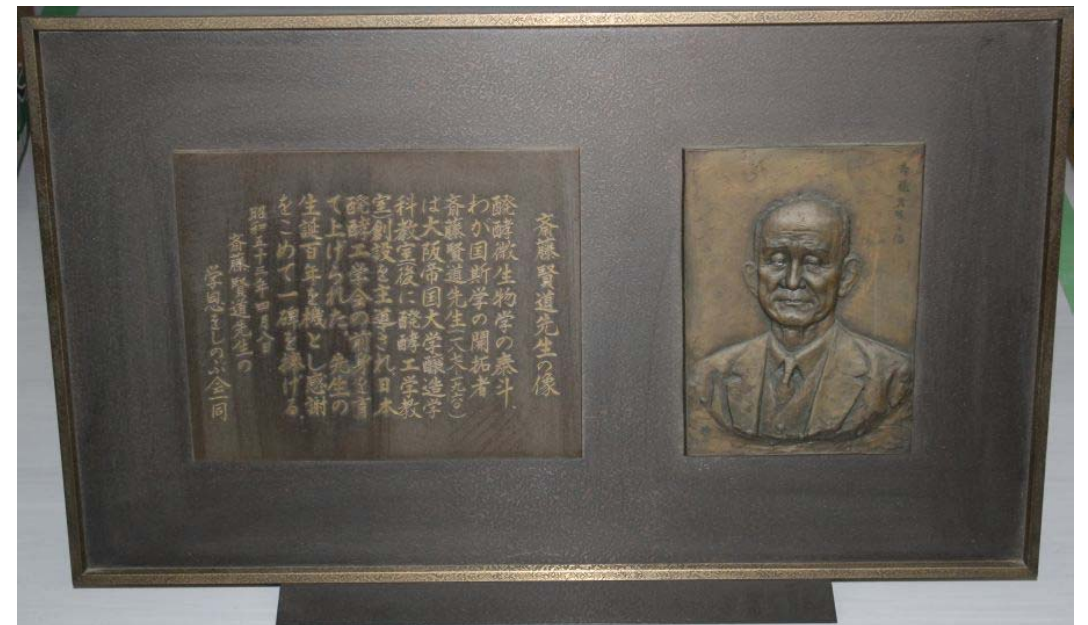 斎藤賢道先生の像
醗酵微生物学の泰斗
わが国斯学の開拓者
斎藤賢道先生(一八七八―一九六〇)
は大阪帝国大学醸造学
科教室後に醗酵工学教
室創設を主導され日本
醗酵工学会の前身を育
て上げられた 先生の
生誕百年を機とし感謝
をこめて一碑を捧げる
昭和五十三年四月八日
斎藤賢道先生の
学恩をしのぶ会一同